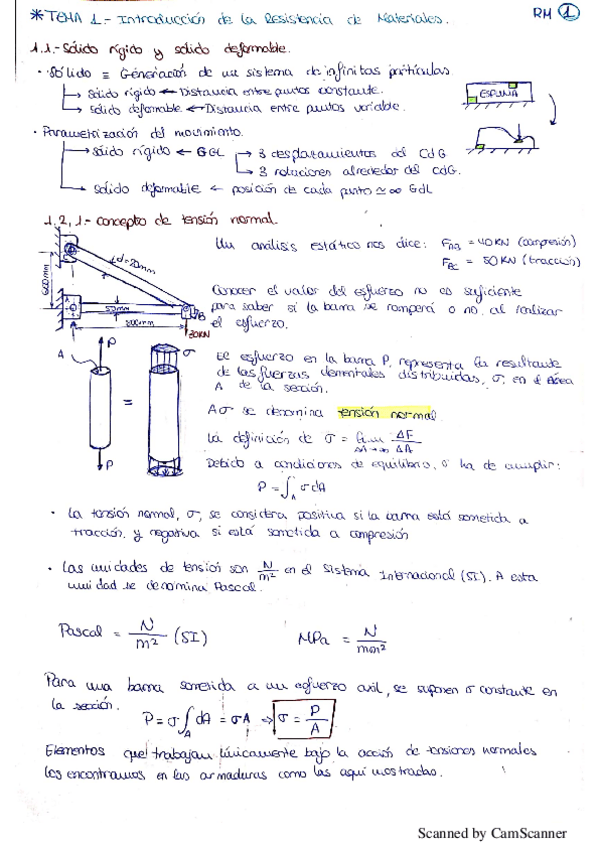 *TEMA 1.- Introducción de la Resistencia de Materiales.
RM 1
1.1.- Sólido rígido y sólido deformable.
· Sólido ≡ Generación de un sistema de infinitas partículas
→ Sólido rígido ← Distancia entre puntos constante.
→ Sólido deformable ← Distancia entre puntos variable.
ESPUMA
· Parametrización del movimiento.
→ sólido rígido ← 6GL → 3 desplazamientos del CdG
→ 3 rotaciones alrededor del CdG.
→ sólido deformable ← posición de cada punto ≃ ∞ GdL
1.2.1.- Concepto de tensión normal.
d=20mm
600mm
50mm
800mm
A
B
C
30KN
Un análisis estático nos dice: F_AB = 40KN (compresión)
F_BC = 50KN (tracción)
Conocer el valor del esfuerzo no es suficiente
para saber si la barra se romperá o no al realizar
el esfuerzo.
P
A
σ
=
P
El esfuerzo en la barra P, representa la resultante
de las fuerzas elementales distribuidas, σ, en el área
A de la sección.
A σ se denomina tensión normal.
La definición de σ = lim ΔF/ΔA
Debido a condiciones de equilibrio, σ ha de cumplir:
P = ∫_A σ dA
· La tensión normal, σ, se considera positiva si la barra está sometida a
tracción, y negativa si está sometida a compresión
· Las unidades de tensión son N/m² en el Sistema Internacional (SI). A esta
unidad se denomina Pascal.
Pascal = N/m² (SI)
MPa = N/mm²
Para una barra sometida a un esfuerzo axil, se suponen σ constante en
la sección.
P = σ ∫_A dA = σA ⇒ σ = P/A
Elementos que trabajan únicamente bajo la acción de tensiones normales
los encontramos en las armaduras como las aquí mostradas.
Scanned by CamScanner